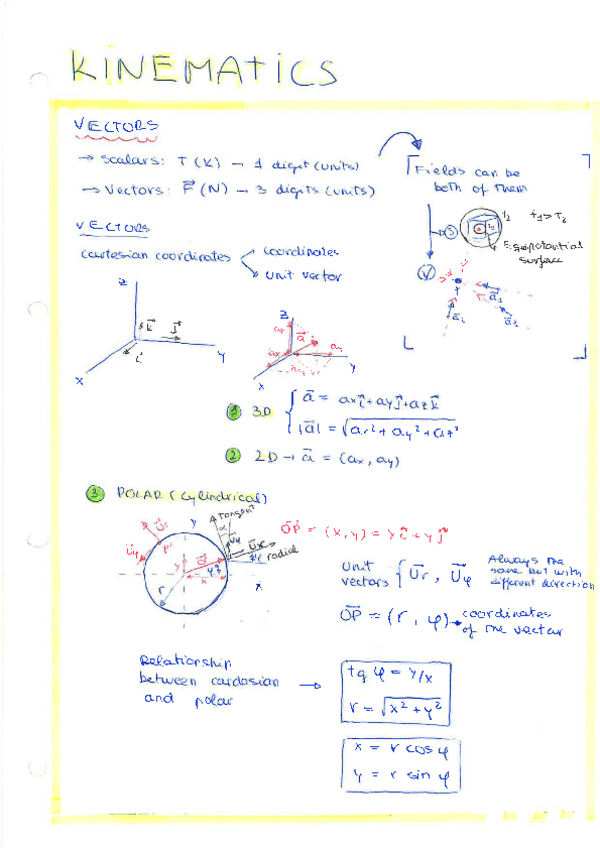 KINEMATICS
VECTORS
→ scalars: T (K) – 1 digit (units)
→ Vectors: F⃗ (N) – 3 digits (units)
Fields can be
both of them
S
T₂
T₁
t₁ > T₂
Equipotential
surface
V
a⃗₁
VECTORS
cartesian coordinates
coordinates
unit vector
z
k⃗
j⃗
i⃗
y
x
z
az
a⃗
ax
ay
y
x
① 3D
a⃗ = axi⃗ + ayj⃗ + azk⃗
|a⃗| = √ax² + ay² + az²
② 2D → a⃗ = (ax, ay)
③ POLAR (cylindrical)
tangent
y
radial
x
r
OP⃗ = (x, y) = x i⃗ + y j⃗
unit
vectors { U⃗r, U⃗φ
Always the
same but with
different direction
OP⃗ = (r, φ) → coordinates
of the vector
Relationship
between cardasian →
and polar
tg φ = y/x
r = √x² + y²
x = r cos φ
y = r sin φ